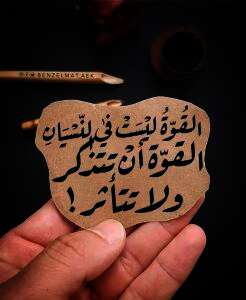 BENZELMAT.AEK
القُوّةُ لَيْسَتْ في النِّسْيَانِ
القوّة أنْ تتذكر
ولا تتأثر!